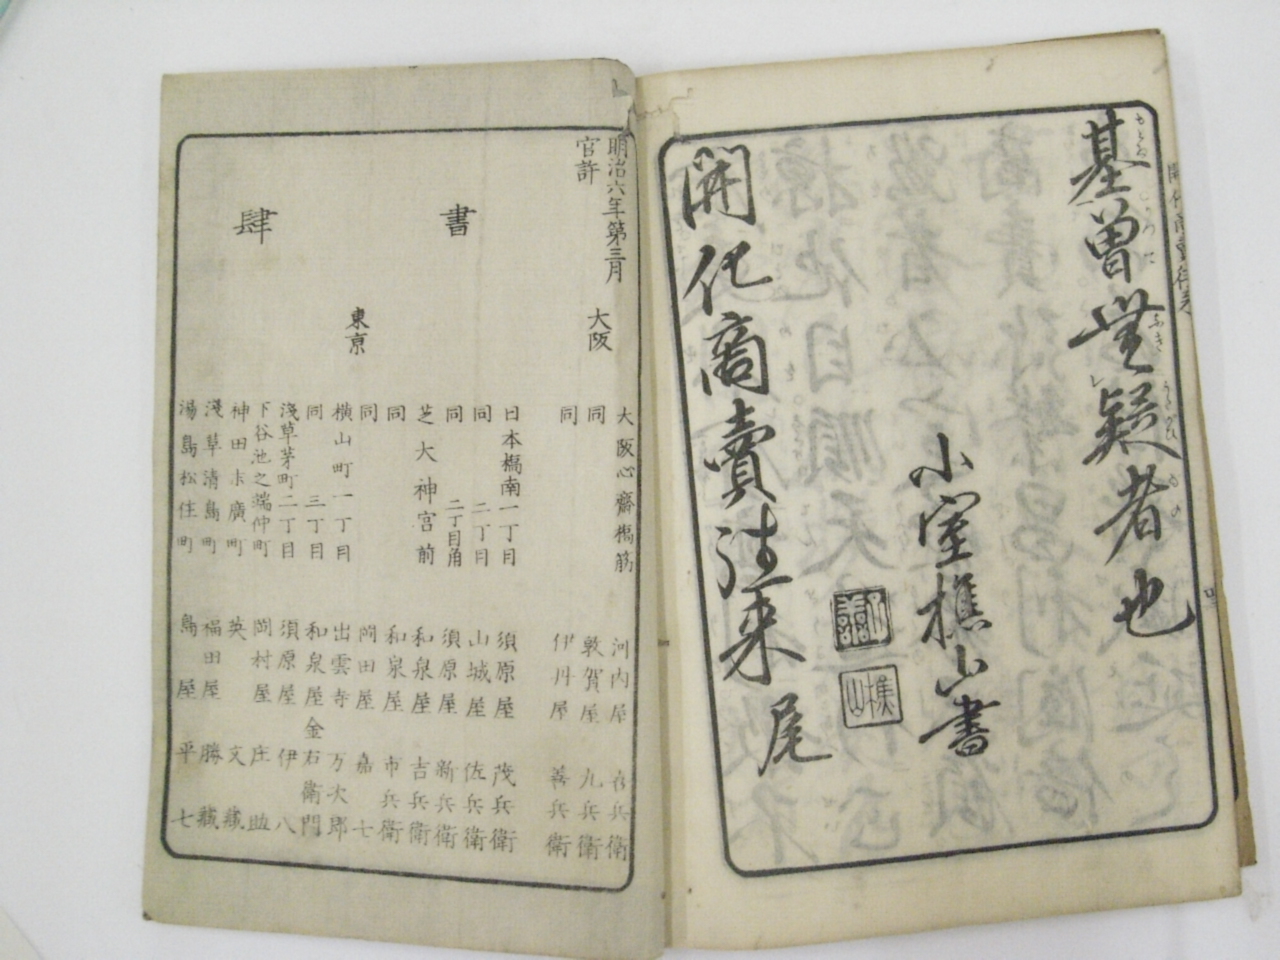 基曽無疑者也
小室樵山書
樵山
開化商賣往来 尾
開化商賣往来
明治六年第三月
官許
書肆
大阪
大阪心齋橋筋 河内屋 兵衛
同 敦賀屋 九兵衛
同 伊丹屋 善兵衛
東京
日本橋南一丁目 須原屋 茂兵衛
同 二丁目 山城屋 佐兵衛
同 二丁目角 須原屋 新兵衛
芝大神宮前 和泉屋 吉兵衛
同 和泉屋 市兵衛
同 岡田屋 嘉七
横山町一丁目 出雲寺 万次郎
同 三丁目 和泉屋 金右衛門
淺草茅町二丁目 須原屋 伊八
下谷池之端仲町 岡村屋 庄助
神田末廣町 英 文藏
淺草清島町 福田屋 勝藏
湯島松住町 島屋 平七